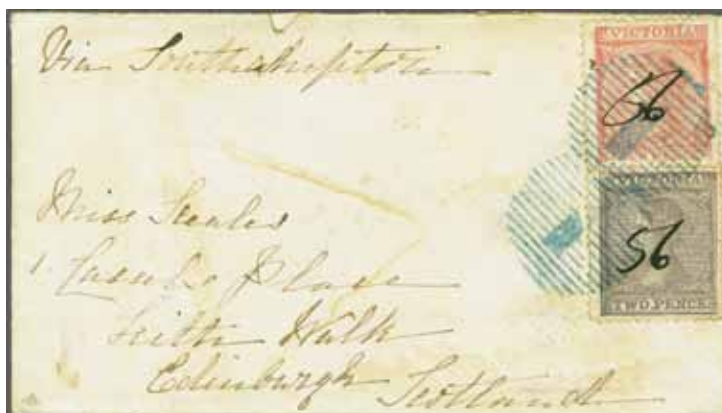 Via Southampton
VICTORIA
56
VICTORIA
56
TWO PENCE
Miss
1 Place
Leith Walk
Edinburgh Scotland